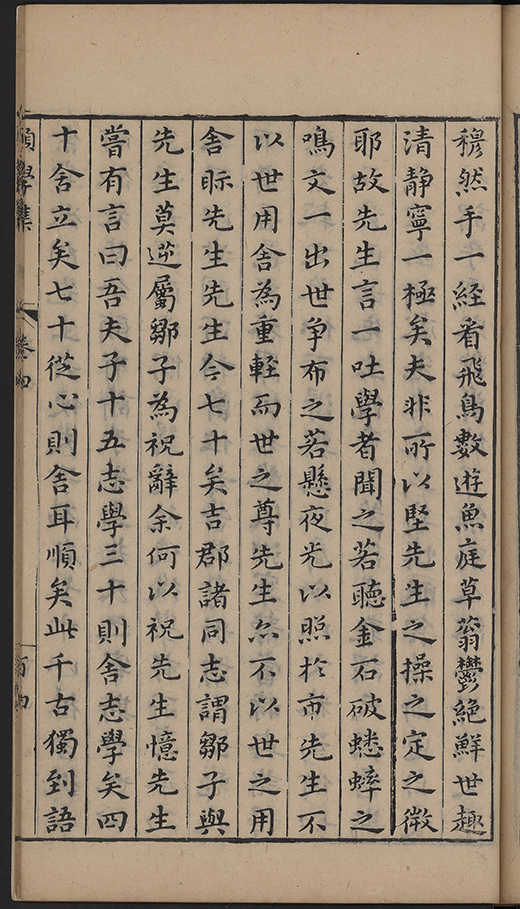 穆然手一経看飛鳥數遊魚庭草蓊鬱絶鮮世趣
清静寧一極矣夫非所以堅先生之操之定之徴
耶故先生言一吐學者聞之若聽金石破蟋蟀之
鳴文一出世争布之若懸夜光以照於市先生不
以世用舍為重軽而世之尊先生亦不以世之用
舍眎先生先生今七十矣吉郡諸同志謂鄒子與
先生莫逆屬鄒子為祝辭余何以祝先生憶先生
嘗有言曰吾夫子十五志學三十則舍志學矣四
十舍立矣七十從心則舍耳順矣此千古獨到語
願學集
卷四